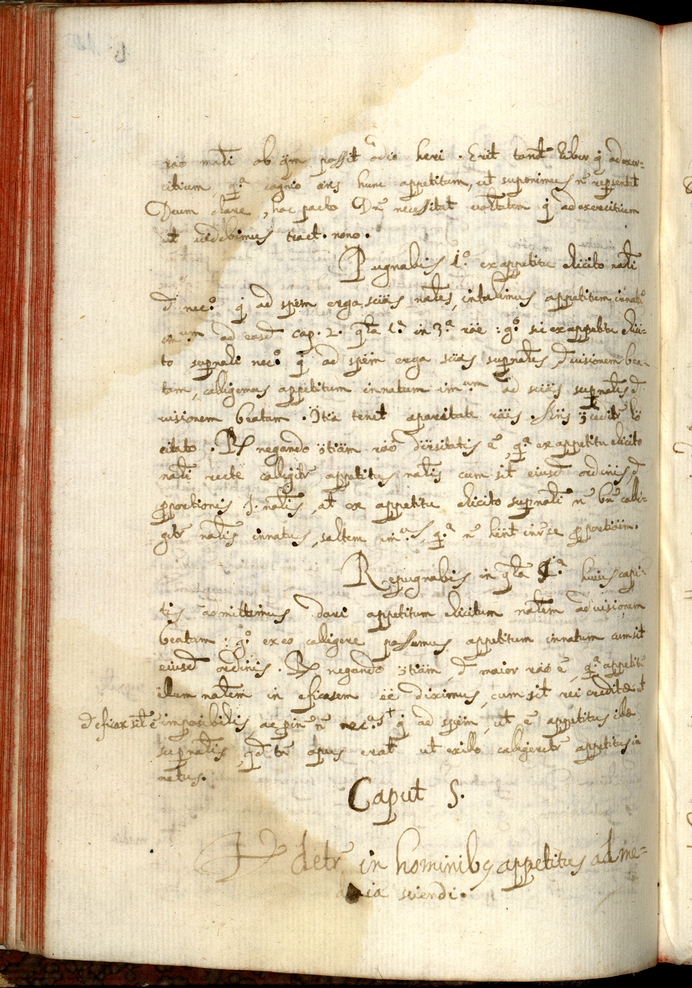 rão mali ob qm possit odio heri. Erit tamt liber q ad exer-
citium, qa cognio hunc appetitum, ut suponimus, n repsentat
Deum clare, hoc pacto Dns necessitat volttem q ad exercitium
ut videbimus tract. nono.
Pugnabis 1o ex appetitu elicito nali
& neco q ad spem erga scias nales, intulimus appetitum innatu
um ad easd cap. 2. qta 1a in 3a rãe: go si ex appetitu elici-
to supnali neco q ad spem erga scias supnales, & visionem bea-
tam, colligemus appetitum innatum imum ad scias supnales &
visionem beatam. Ͻtia tenet a paritate rãis.
citato. R negando Ͻtiam rão disitatis e, qa ex appetitu elicito
nali recte colligitr appetitus nalis cum sit eiusd ordinis &
pportionis s. nalis, at ex appetitu elicito supnali n bn colli-
gitr nalis innatus, saltem imus, qa n hent inr se pportionem.
Repugnabis in qta 1a huius capi-
tis admittimus dari appetitum elicitum nalem ad visionem
beatam: go ex eo colligere possumus appetitum innatum cum sit
eiusd ordinis. R negando Ͻtiam, & maior rão e qa appetitu
illum nalem in eficasem eẽ diximus, cum sit rei creditæ ut
& eficax sit e imposibilis, ac pinde n necus q ad spem, ut e appetitus ille
supnalis, qd tn opus erat ut ex illo colligeretr appetitus in
natus.
Caput 5.
detr in hominibus appetitus ad me-
dia sciendi.